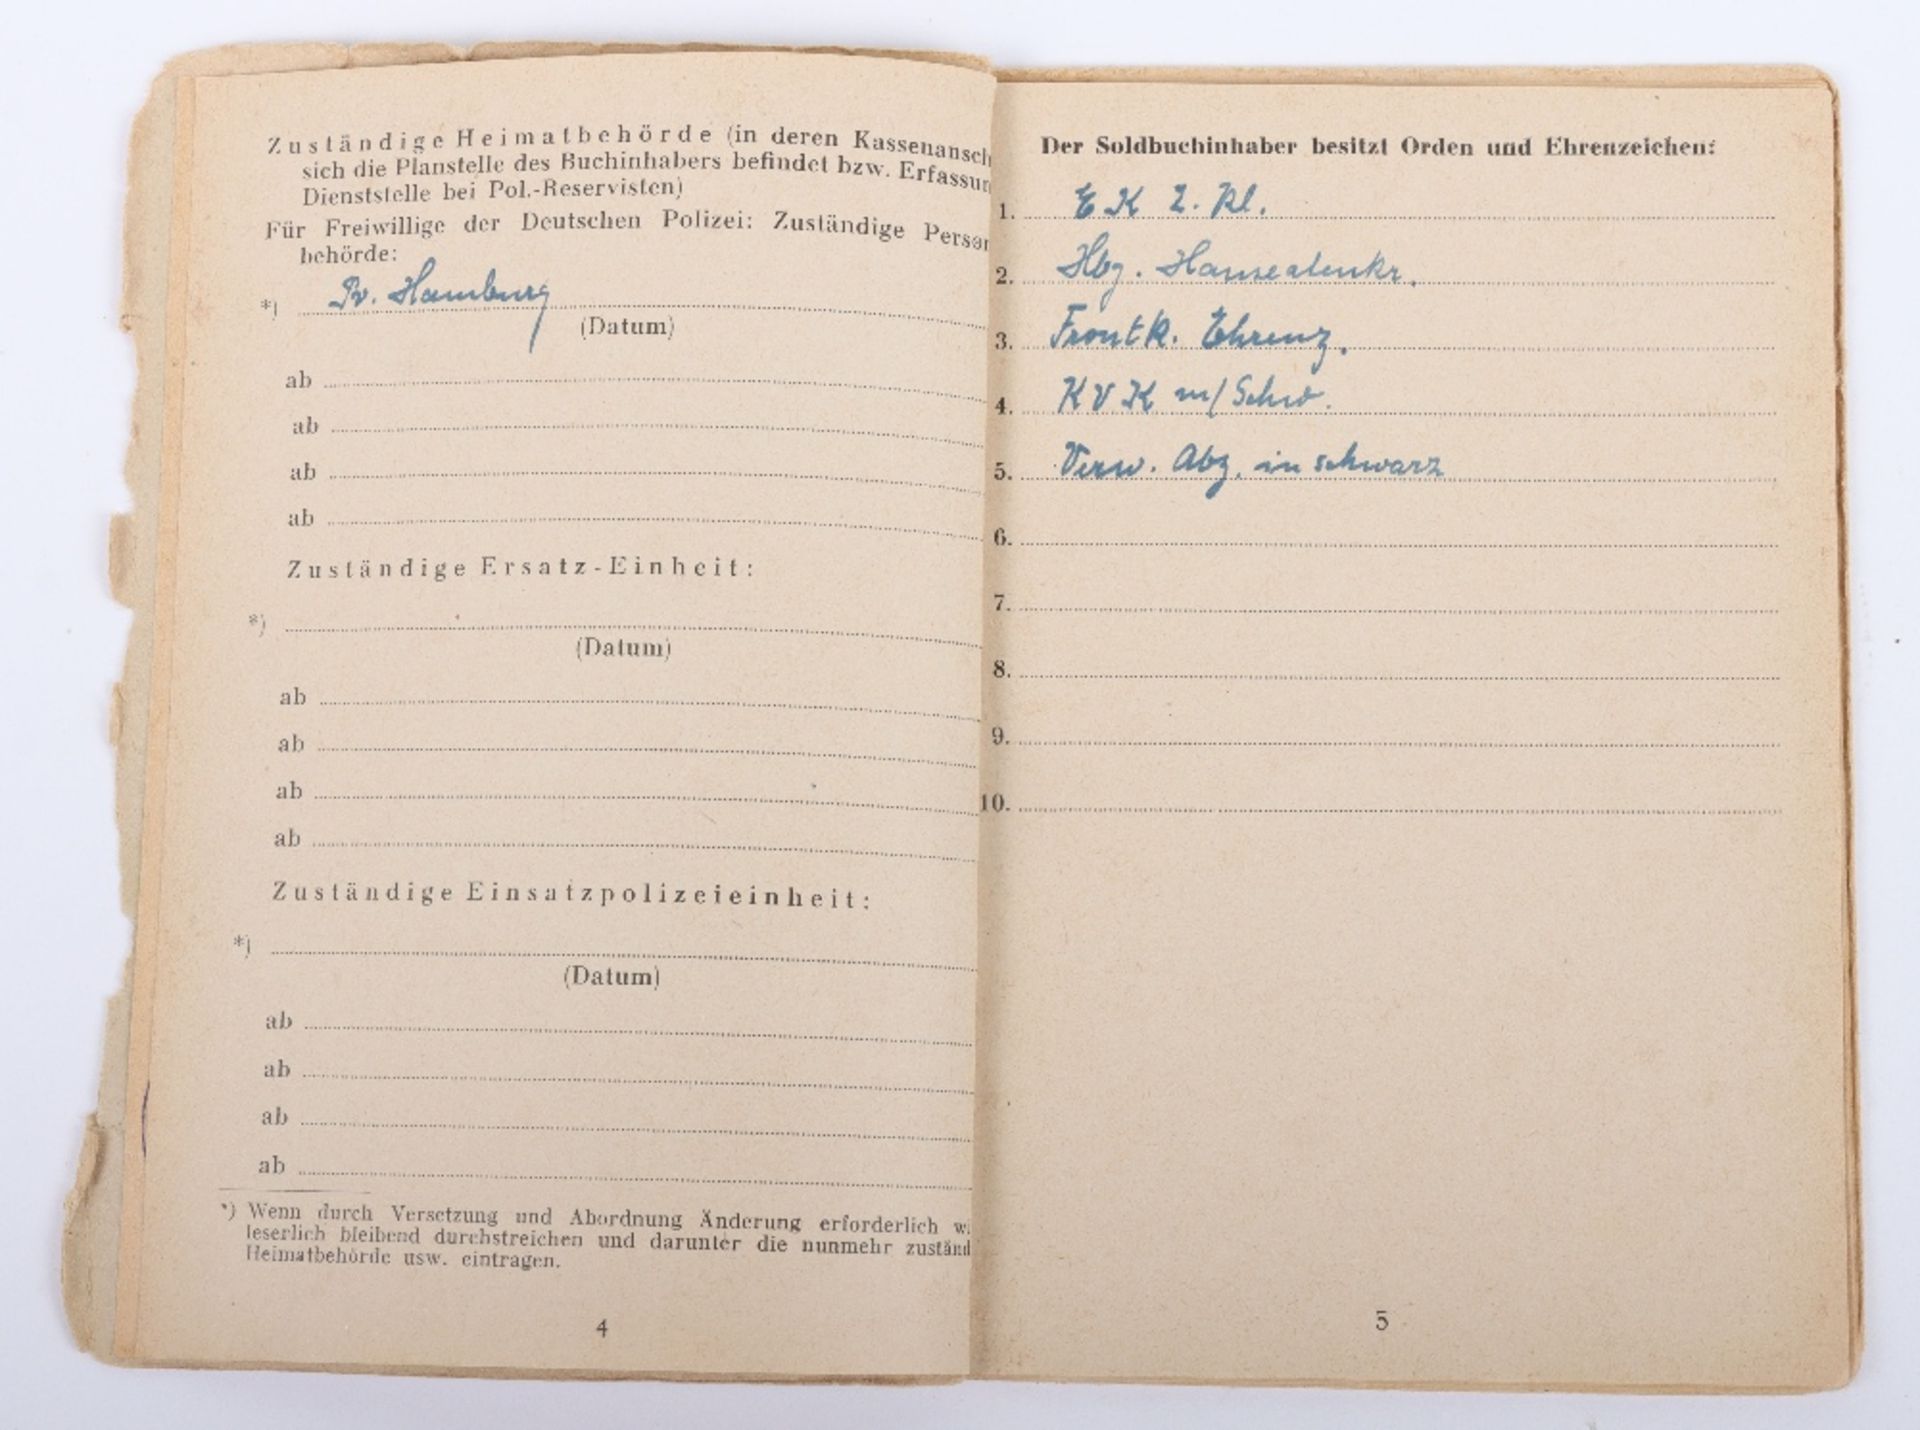 Zuständige Heimatbehörde (in deren Kassenansch
sich die Planstelle des Buchinhabers befindet bzw. Erfassun
Dienststelle bei Pol.-Reservisten)
Für Freiwillige der Deutschen Polizei: Zuständige Person
behörde:
*) Pv. Hamburg
(Datum)
ab
ab
ab
ab
Zuständige Ersatz-Einheit:
*)
(Datum)
ab
ab
ab
ab
Zuständige Einsatzpolizeieinheit:
*)
(Datum)
ab
ab
ab
ab
*) Wenn durch Versetzung und Abordnung Änderung erforderlich wi
leserlich bleibend durchstreichen und darunter die nunmehr zuständ
Heimatbehörde usw. eintragen.
4
Der Soldbuchinhaber besitzt Orden und Ehrenzeichen:
1. EK 2. Kl.
2. Hbg. Hanseatenkr.
3. Frontk. Ehrenz.
4. KVK m/Schw.
5. Verw. Abz. in schwarz
6.
7.
8.
9.
10.
5